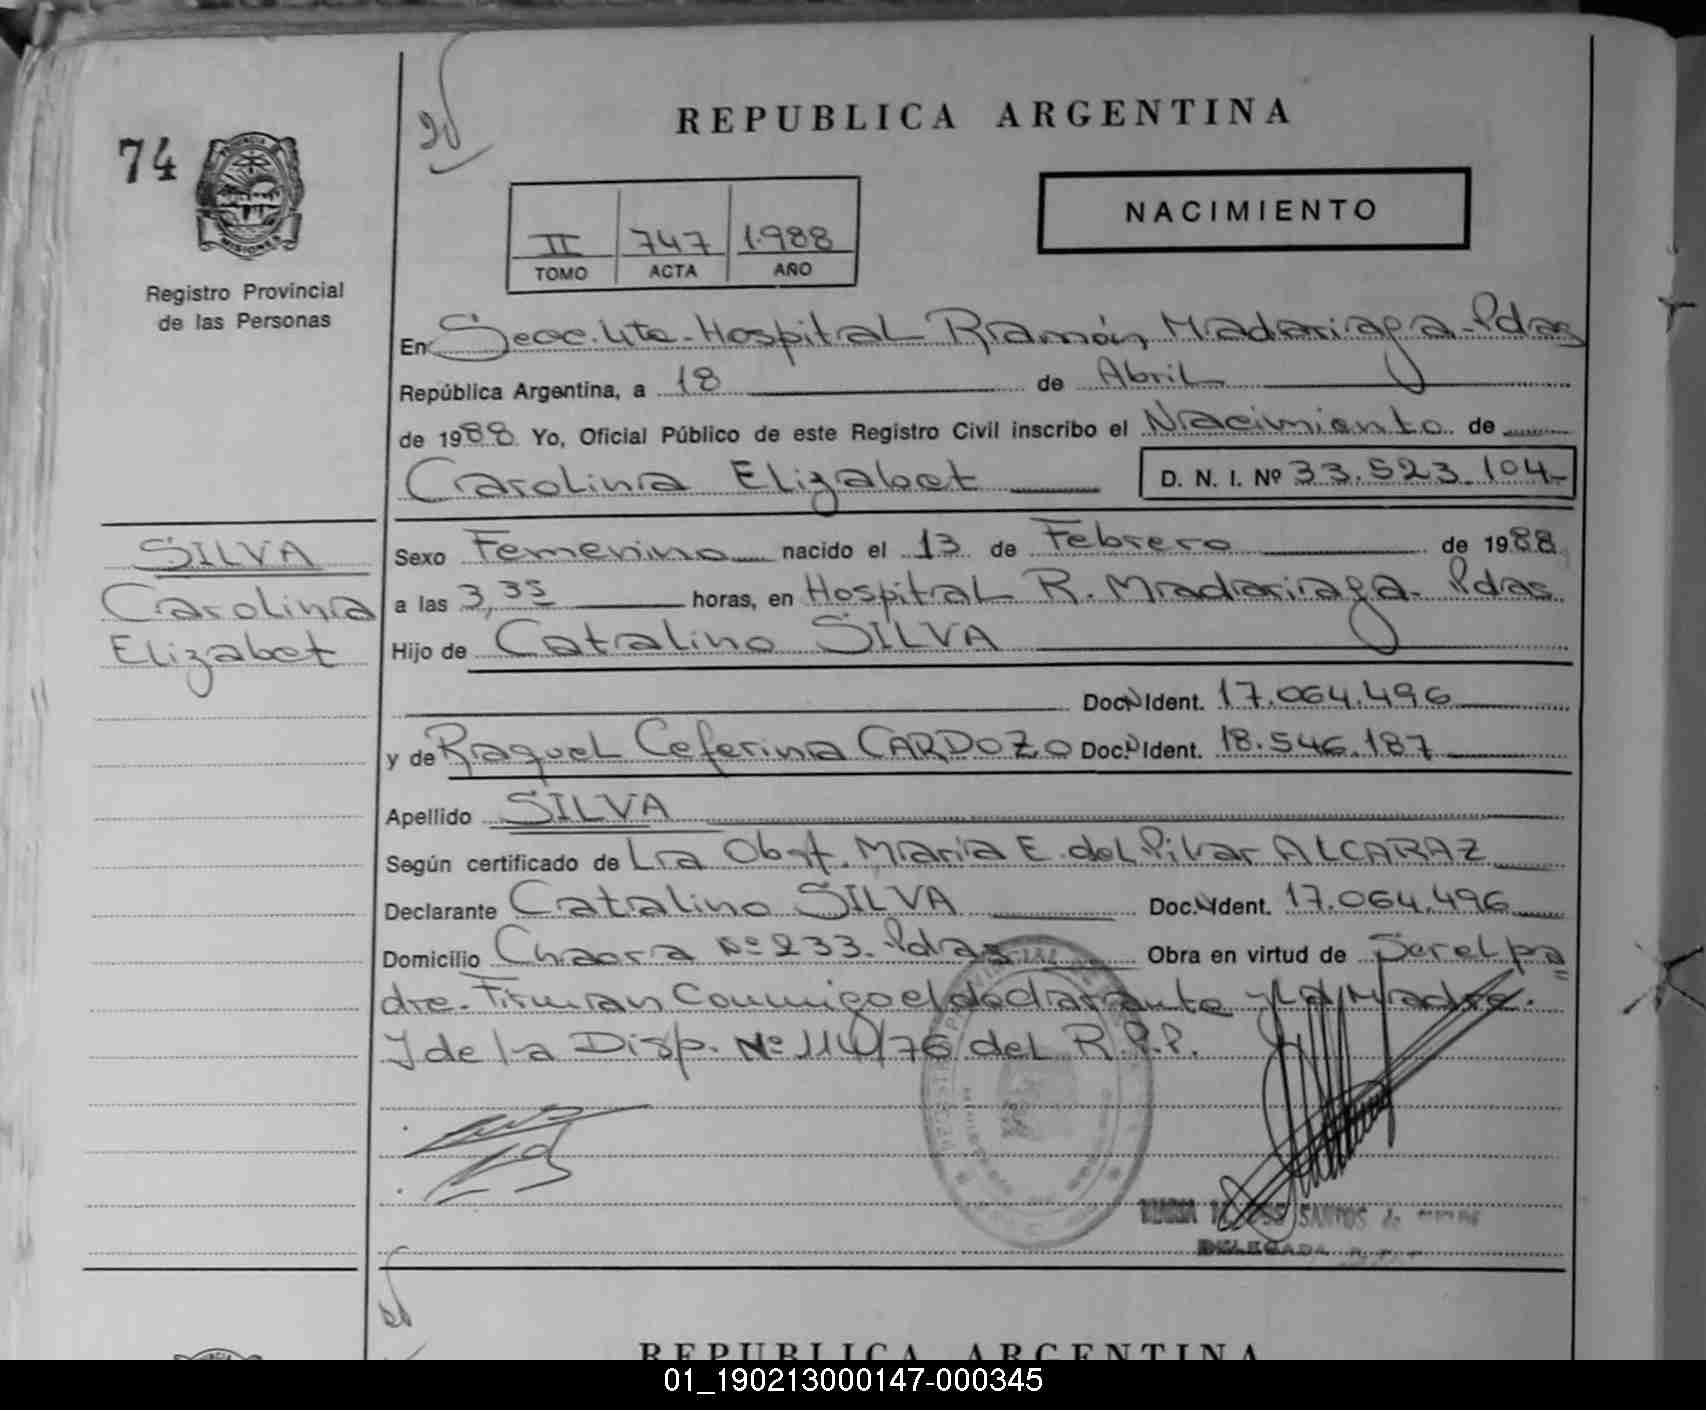 REPUBLICA ARGENTINA
74
NACIMIENTO
II 747 1.988
TOMO ACTA AÑO
Registro Provincial
de las Personas
En Secc. 4ta - Hospital Ramón Madariaga - Pdas
República Argentina, a 18 de Abril
de 1988 Yo, Oficial Público de este Registro Civil inscribo el Nacimiento de
Carolina Elizabet D. N. I. Nº 33.523.104-
SILVA
Carolina
Elizabet
Sexo Femenino nacido el 13 de Febrero de 1988
a las 3,35 horas, en Hospital R. Madariaga - Pdas
Hijo de Catalino SILVA
Doc.N.Ident. 17.064.496
y de Raquel Ceferina CARDOZO Doc.N.Ident. 18.546.187
Apellido SILVA
Según certificado de La Obst. Maria E. del Pilar ALCARAZ
Declarante Catalino SILVA Doc.N.Ident. 17.064.496
Domicilio Chacra Nº 233. Pdas Obra en virtud de Ser el pa
dre. Firman Conmigo el declarante y La Madre.
Y de la Disp. Nº 114/76 del R.P.P.
SANTOS de
DELEGADA
REPUBLICA ARGENTINA
01_190213000147-000345